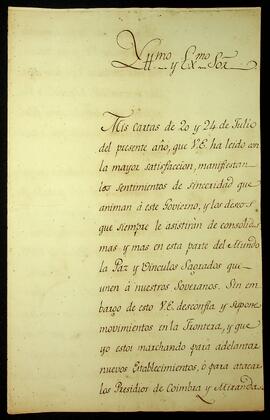 Yll.mo y Ex.mo Sor.
Mis cartas de 20 y 24 de Julio
del presente año, que V.E. ha leido con
la mayor satisfaccion, manifiestan
los sentimientos de sinceridad que
animan à este Govierno, y los deseos
que siempre le asistiràn de consolidar
mas y mas en esta parte del Mundo
la Paz y Vinculos Sagrados que
unen à nuestros Soveranos. Sin em
bargo de esto V.E. desconfia y supone
movimientos en la Frontera, y que
yo estoi marchando para adelantar
nuevos Establecimientos, ò para atacar
los Presidios de Coimbra y Miranda.